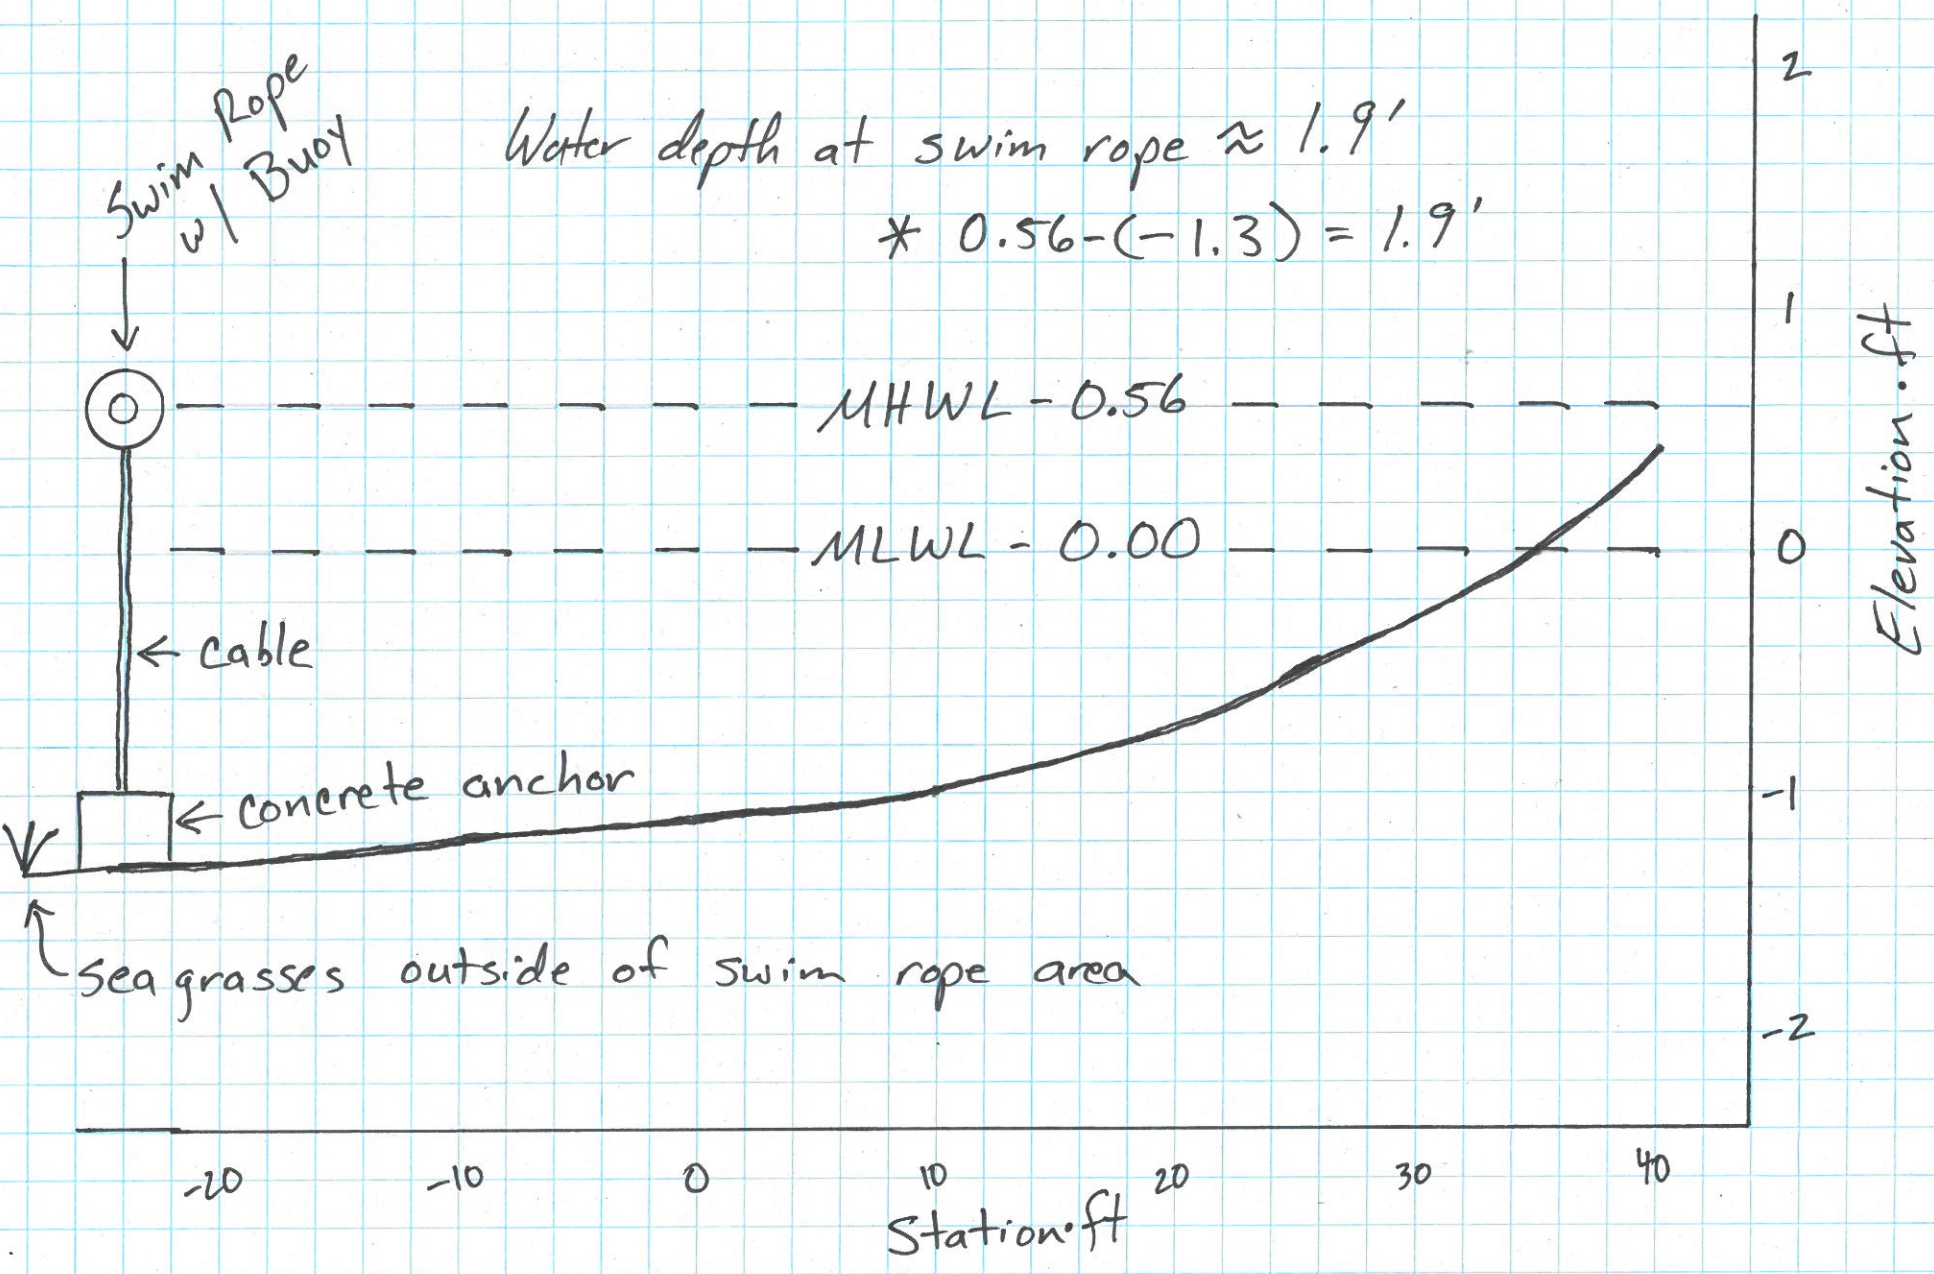 Swim Rope
w/ Buoy
Water depth at swim rope ≈ 1.9'
* 0.56-(-1.3) = 1.9'
MHWL - 0.56
MLWL - 0.00
← cable
← concrete anchor
sea grasses outside of swim rope area
2
1
0
-1
-2
Elevation.ft
-20 -10 0 10 20 30 40
Station.ft